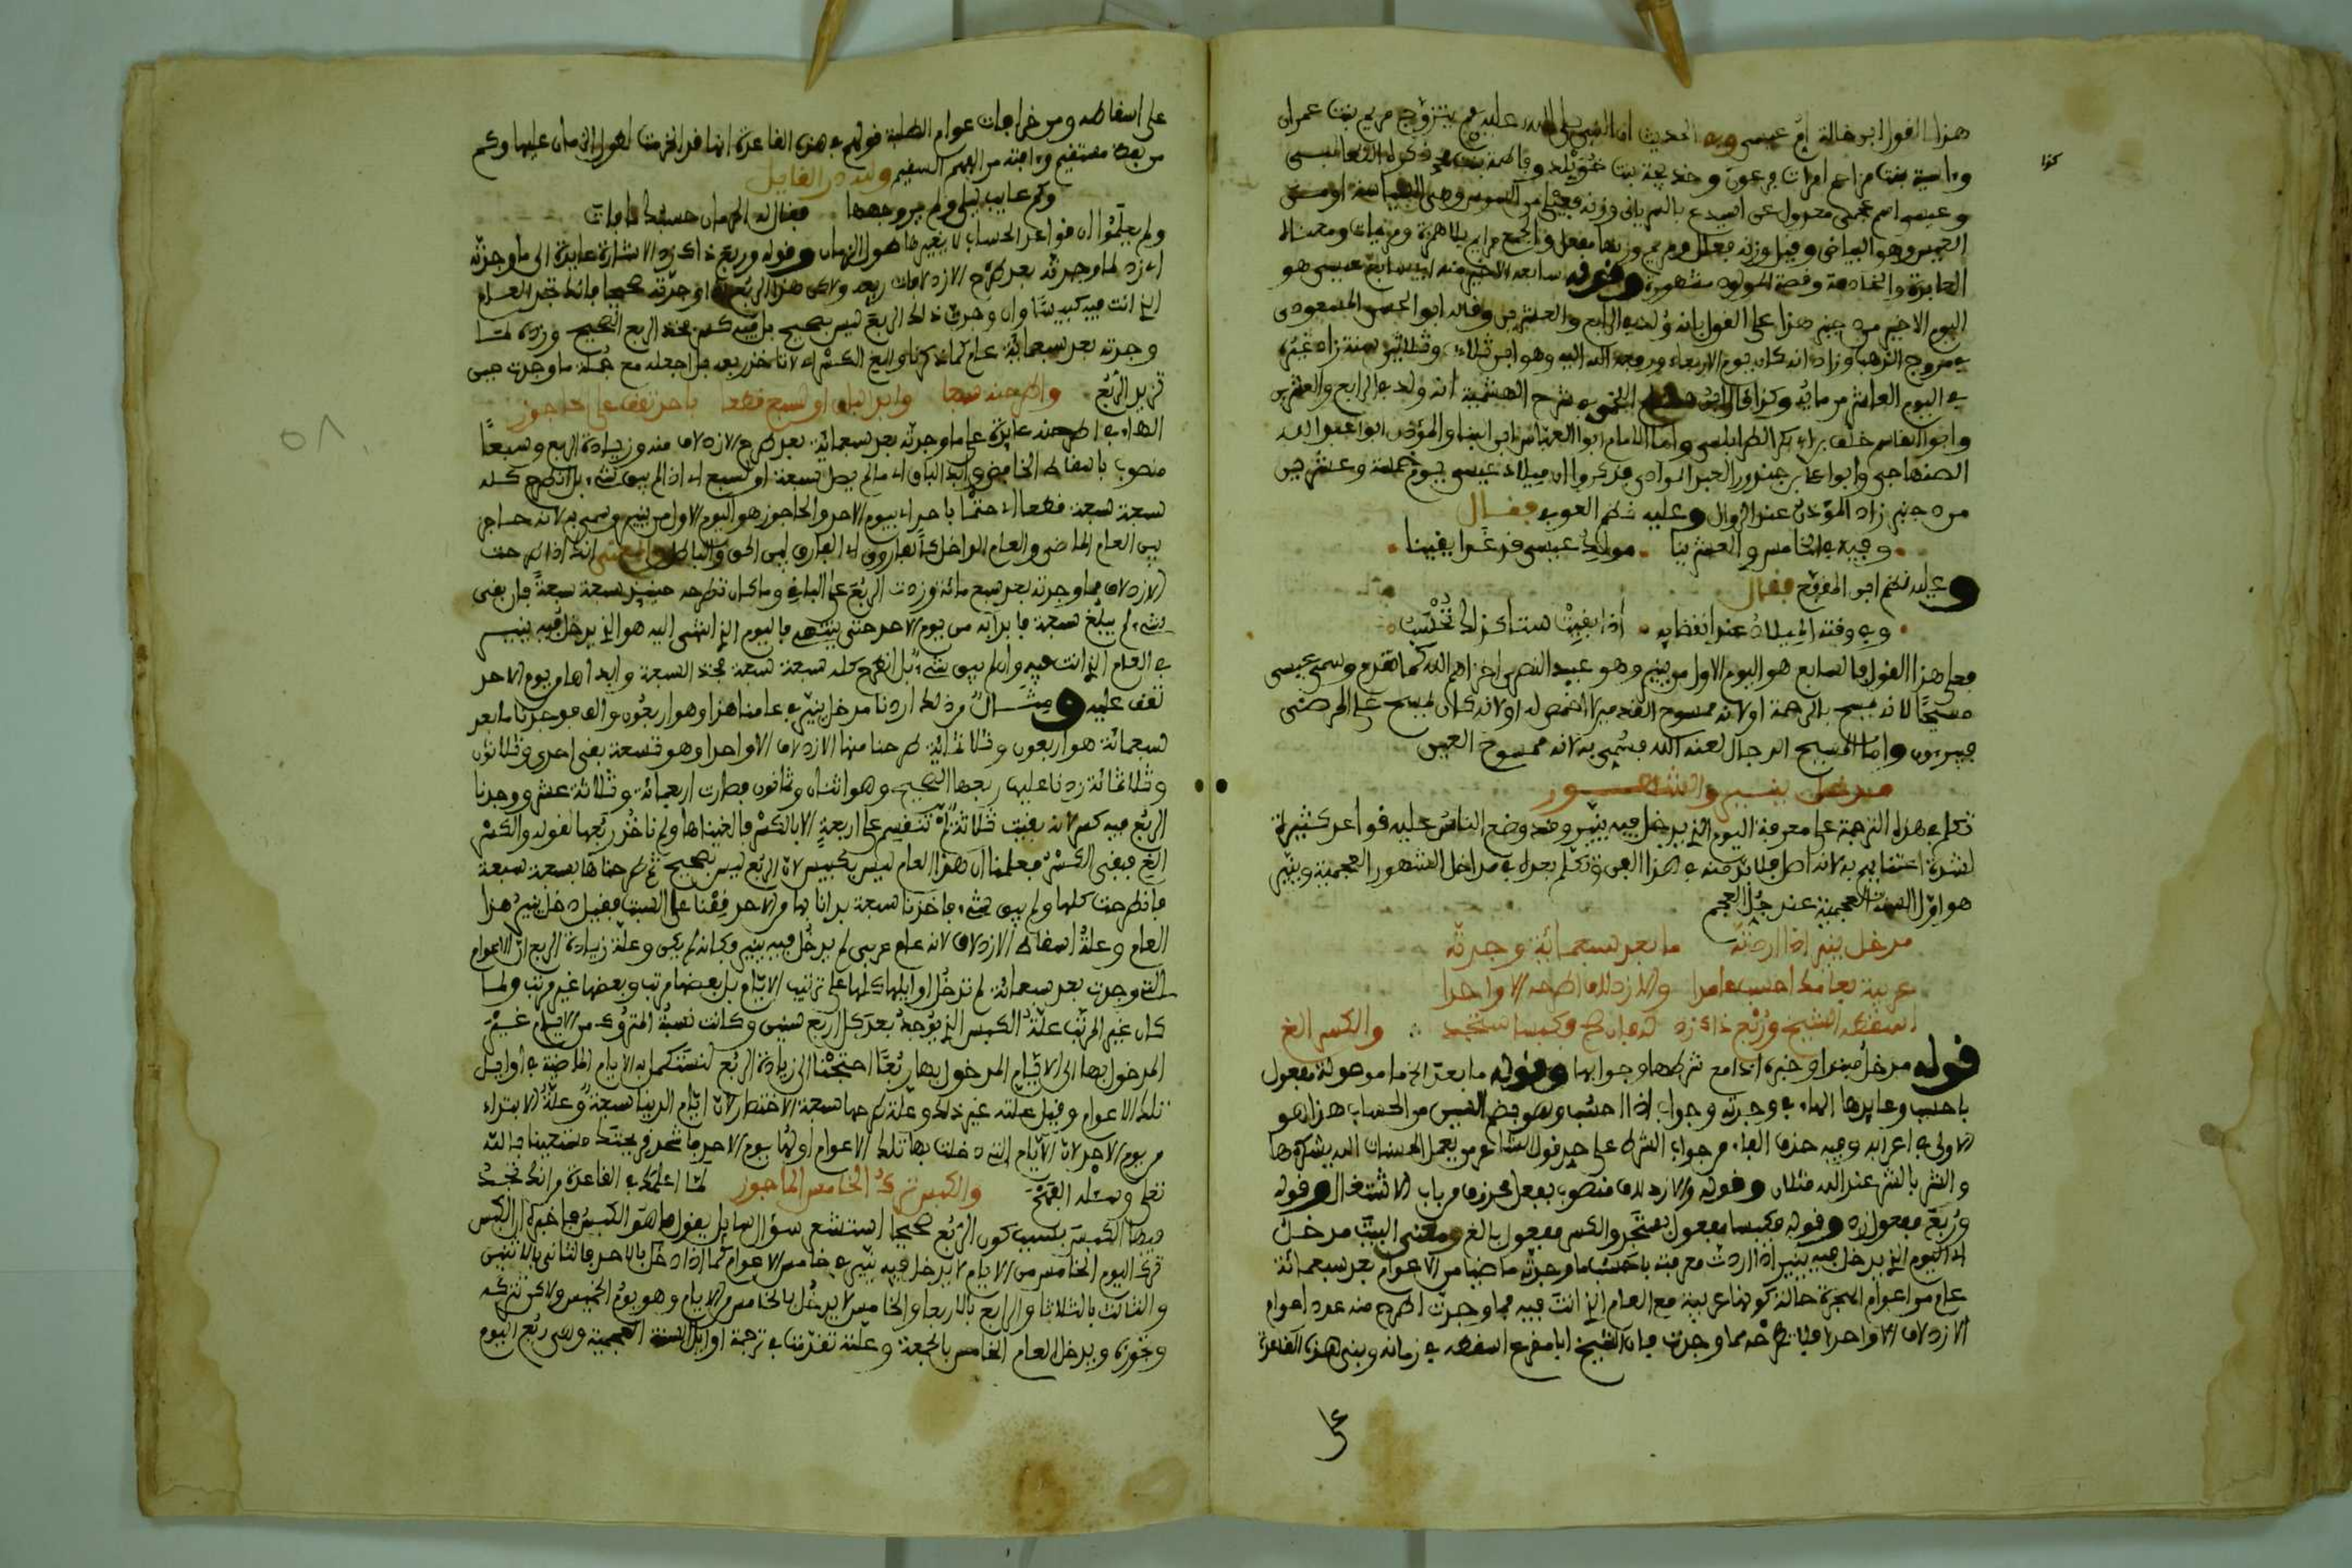 هذا القول ابن خالة أم عيسى وفي الحديث أن النبي صلى الله عليه يتزوج مريم بنت عمران
كذا
وءاسية بنت مزاحم امرأت فرعون وخديجة بنت خويلد وفاطمة بنت
وعيسى اسم عجمي معدول عن ايسوع بالسريانية وزنه فعلى من العيس
العيس وهو البياض وقيل وزنه فعلل ومريم وزنها مفعل والجمع مرايم
وقصة المولود مشهورة وقوله سابعه الاخير منه عيسى هو
اليوم الاخير من دجنبر هذا على القول بانه ولد في الرابع والعشرين وقال ابو الحسن المسعودي
في مروج الذهب وزاد انه كان يوم الاربعاء ورفعه الله اليه وهو ابن ثلاث وثلاثين سنة زاد غيره
في اليوم العاشر من مايه وكذا قال في شرح انه ولد في الرابع والعشرين
وابو القاسم خلف الطرابلسي واما الامام ابو العباس ابن البنا والمؤذن ابو عبد الله
الصنهاجي وابو عامر فذكروا ان ميلاد عيسى يوم خمسة وعشرين
من دجنبر زاد المؤذن عند الزوال وعليه نظم فقال
وفيه في الخامس والعشرينا مولد عيسى قد غدا يقينا
وعليه نظم ابو المقرع فقال
وفي وقته الميلاد عند انقضايه اذا بقيت ست كذلك تحسب
فعلى هذا القول فالسابع هو اليوم الاول من ينير وهو عيد النصرى اخزاهم الله كما تقدم وسمي عيسى
مسيحا لانه مسح بالرحمة او لانه ممسوح القدمين لا اخمص له او لانه كان يمسح على المرضى
فيبرءون واما المسيح الدجال لعنه الله فسمي به لانه ممسوح العين
مدخل ينير والشهور
تكلم في هذه الترجمة على معرفة اليوم الذي يدخل فيه ينير وقد وضع الناس عليه قواعد كثيرة
لشدة اعتنايهم به لانه اصل في هذا الفن وتكلم بعده في مداخل الشهور العجمية وينير
هو اول السنة العجمية عند جل العجم
مدخل ينير اذا اردته ما بعد سبعمائة وجدته
عربية بعامك احسب عامدا والازدلاف اطرحه الا واحدا
اسقطه الشيخ وربع ذاك زد فكبيسا ستجد والكسر الغ
قوله مدخل مبتدا وخبره اذا مع شرطها وجوابها وقوله ما بعد الخ ما موصولة مفعول
باحسب وعايدها الهاء في وجدته وجواب اذا احسب وهو بضم السين من الحساب هذا هو
الاولى في اعرابه وفيه حذف الفاء من جواب الشرط على حد قول الشاعر من يفعل الحسنات الله يشكرها
والشر بالشر عند الله مثلان وقوله والازدلاف منصوب بفعل محذوف من باب الاشتغال وقوله
وربع مفعول زد وقوله فكبيسا مفعول بستجد والكسر مفعول بالغ ومعنى البيت مدخل
اي اليوم الذي يدخل فيه ينير اذا اردت معرفته فاحسب ما وجدته ماضيا من الاعوام بعد سبعمائة
عام من اعوام الهجرة حالة كونها عربية مع العام الذي انت فيه فما وجدت اطرح منه عدد اعوام
الازدلاف الا واحدا فلا تطرحه مما وجدت فان الشيخ ابا مقرع اسقطه في زمانه وبنى هذه القاعدة
على اسقاطه ومن خرافات عوام الطلبة قولهم في هذه القاعدة انها قد انخرمت لطول الزمان عليها وكم
من عايب مستقيم وءافته من الفهم السقيم ولله در القايل
وكم عايب ليلى ولم ير وجهها فقال له الحرمان حسبك ما فات
ولم يعلموا ان قواعد الحساب لا يغيرها طول الزمان وقوله وربع ذاك زد الاشارة عايدة الى ما وجدته
اي زد لما وجدته بعد طرح الازدلاف ربعه ولاكن هذا الربع ان وجدته صحيحا فانك تجد العام
الذي انت فيه كبيسا وان وجدت ذلك الربع ليس بصحيح بل فيه كسر فخذ الربع الصحيح وزده لما
وجدته بعد سبعمائة عام كما ذكرنا والغ الكسر اي لا تاخذ ربعه بل اجعله مع جملة ما وجدت حين
تزيد الربع واطرحنه سبعا وابد لباق او لسبع قطعا باحد تقف على حاجوز
الهاء في اطرحنه عايدة على ما وجدته بعد سبعمائة بعد طرح الازدلاف منه وزيادة الربع وسبعا
منصوب باسقاط الخافض وابد الباقي اي ما لم يصل سبعة او لسبع اي اذا لم يبق شيء بل انطرح كله
سبعة سبعة قطعا اي حتما باحد اي بيوم الاحد والحاجوز هو اليوم الاول من ينير وسمي به لانه حاجز
بين العام الماضي والعام الداخل كالفاروق اي الفارق بين الحق والباطل والمعنى انك اذا طرحت
الازدلاف مما وجدته بعد سبع مائة وزدت الربع على الباقي وما كان تطرحه حينيذ سبعة سبعة فان بقي
شيء لم يبلغ سبعة فابدا به من يوم الاحد حتى ينتهي فاليوم الذي انتهى اليه هو الذي يدخل فيه ينير
في العام الذي انت فيه وان لم يبق شيء بل انطرح كله سبعة سبعة فخذ السبعة وابدا بها من يوم الاحد
تقف عليه ومثال من ذلك اردنا مدخل ينير في عامنا هذا وهو اربعون والف فوجدنا ما بعد
سبعمائة هو اربعون وثلاثمائة طرحنا منها الازدلاف الا واحدا وهو تسعة بقي احدى وثلاثون
وثلاثمائة زدنا عليها ربعها الصحيح وهو اثنان وثمانون فصارت اربعمائة وثلاثة عشر ووجدنا
الربع فيه كسر لانه بقيت ثلاثة لم تنقسم على اربعة الا بالكسر فالغيناها ولم ناخذ ربعها لقوله والكسر
الغ فبقي الكسر فعلمنا ان هذا العام ليس بكبيس لان الربع ليس بصحيح ثم طرحناها بسبعة سبعة
فانطرحت كلها ولم يبق شيء فاخذنا سبعة بدانا بها من الاحد وقفنا على السبت فقيل دخل ينير هذا
العام وعلة اسقاط الازدلاف لانه عام عربي لم يدخل فيه ينير فكانه لم يكن وعلة زيادة الربع ان الاعوام
التي وجدت بعد سبعمائة لم تدخل اوايلها كلها على ترتيب الايام بل بعضها مرتب وبعضها غير مرتب ولما
كان غير المرتب علة الكبس الذي يوجد بعد كل اربع سنين وكانت نسبة المتروك من الايام غير
المدخول بها الى الايام المدخول بها ربعا احتجنا الى زيادة الربع لنستكمل به الايام الماضية في اوايل
تلك الاعوام وقيل علته غير ذلك وعلة طرحها سبعة الاختصار لان ايام الدنيا سبعة وعلة الابتداء
من يوم الاحد لان الايام التي دخلت بها تلك الاعوام اولها يوم الاحد
تعلى ونسئله الفتح والكبس ترك الخامس الماجوز لما اعلمك في القاعدة من انك تجد
فيها الكبس بسبب كون الربع صحيحا استشعر سؤال سايل يقول ما هو الكبس فاخبر ان الكبس
ترك اليوم الخامس من الايام لا يدخل فيه ينير في خامس الاعوام كما اذا دخل بالاحد فالثاني بالاثنين
والثالث بالثلاثا والرابع بالاربعا والخامس لا يدخل بالخامس من الايام وهو يوم الخميس ولاكن تتركه
وتجوزه ويدخل العام الخامس بالجمعة وعلته تقدمت في ترجمة اوايل السنة العجمية وهي ربع اليوم
٥٨